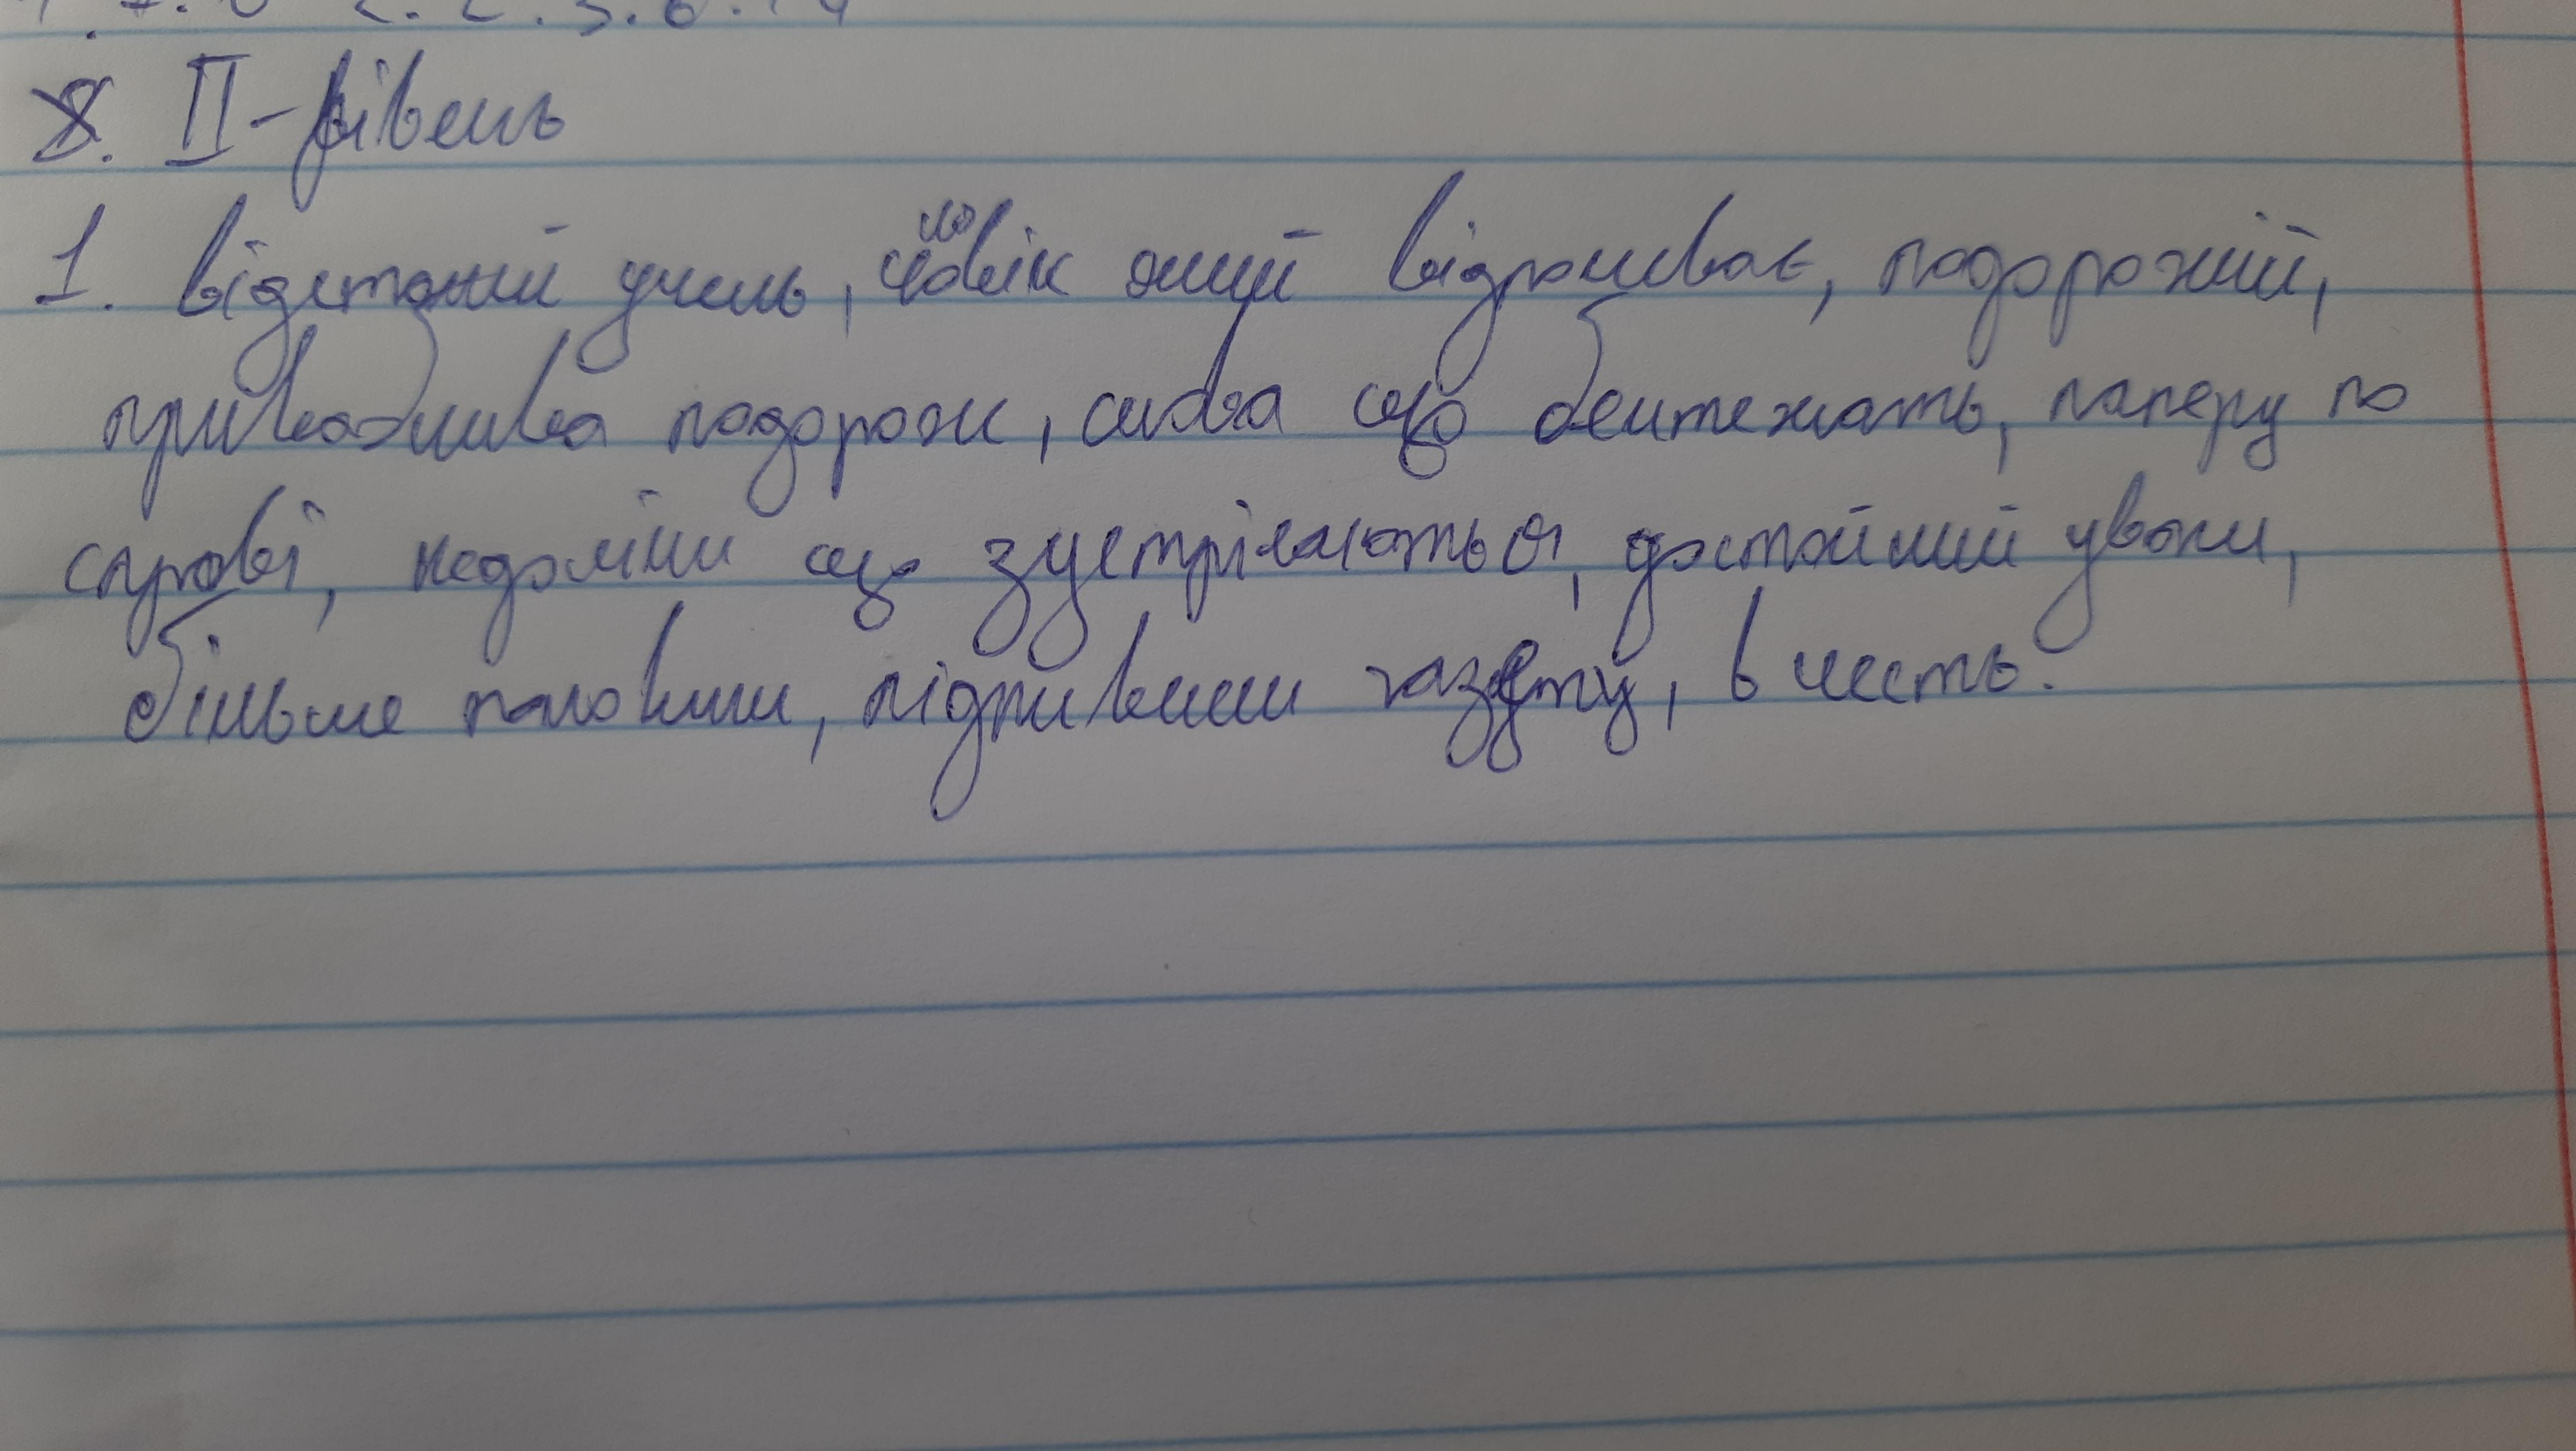 II - рівень
1. відсталий учень, чоловік який відпочиває, подорожній,
приваблива подорож, слова що бентежать, паперу по
справі, недоліки що зустрічаються, достойний уваги,
більше половини, підписчики газету, в честь.